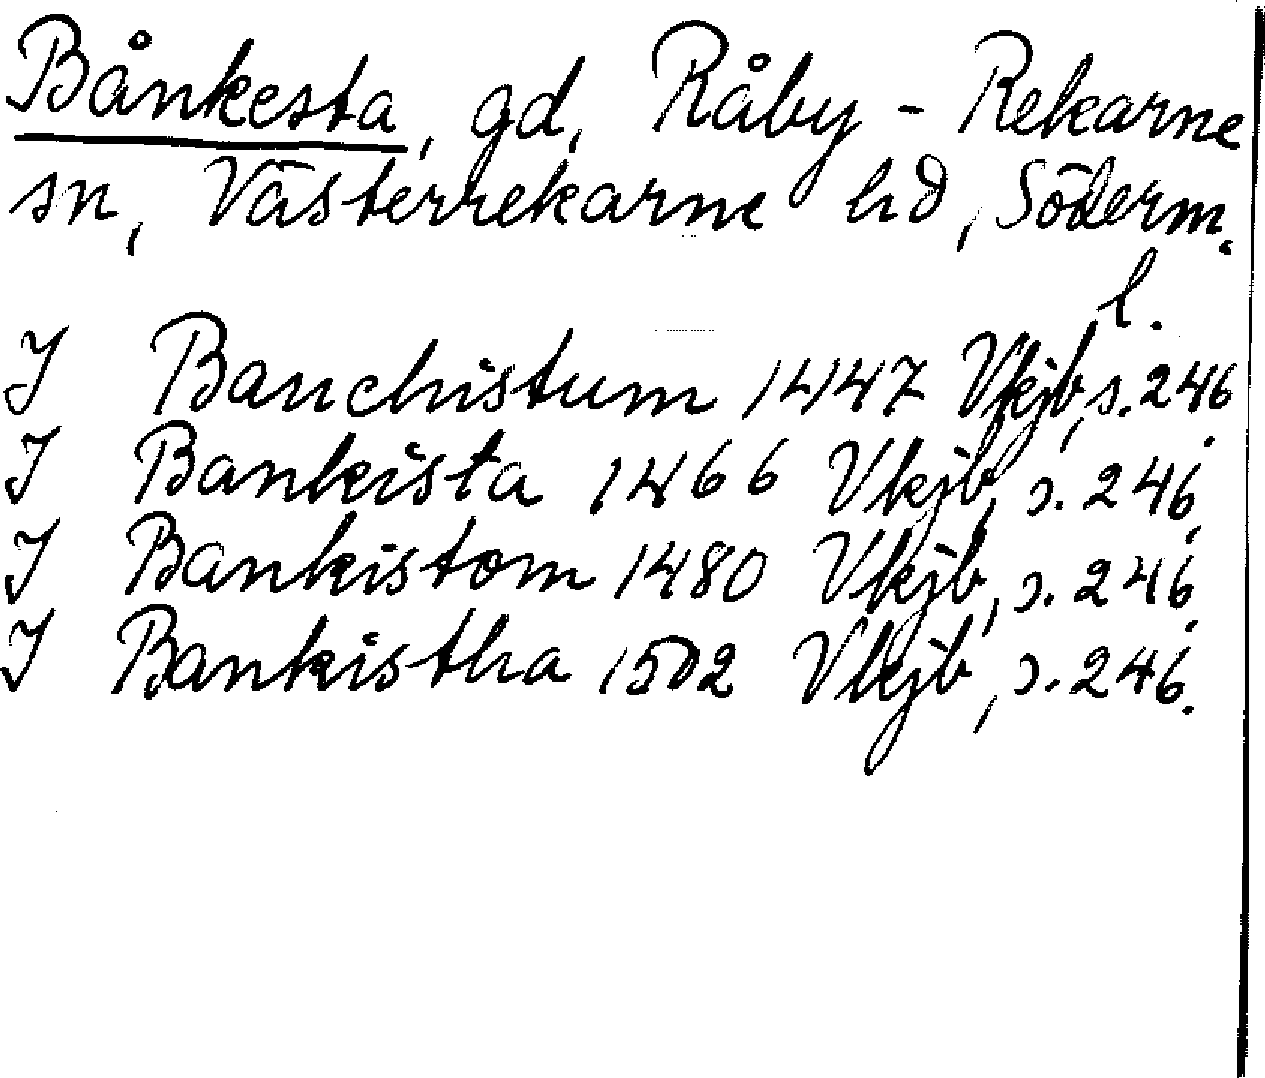 Bånkesta, gd, Råby - Rekarne
sn, Västerrekarne hd, Söderm.
l.
I Banchistum 1447 Vkjb, s. 246
I Bankista 1466 Vkjb, s. 246.
I Bankistom 1480 Vkjb, s. 246.
I Bankistha 1502 Vkjb, s. 246.